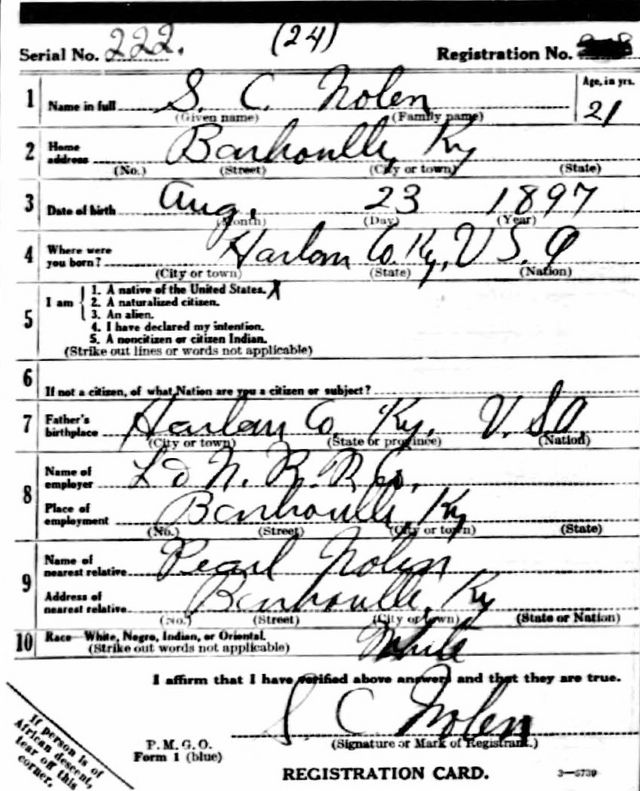 Serial No. 222. (24) Registration No.
1 Name in full S. C. Nolen Age, in yrs. 21
(Given name) (Family name)
2 Home address Barhoulle, Ky
(No.) (Street) (City or town) (State)
3 Date of birth Aug. 23 1897
(Month) (Day) (Year)
4 Where were you born? Harlan Co. Ky, U S. A
(City or town) (State) (Nation)
5 I am
1. A native of the United States. X
2. A naturalized citizen.
3. An alien.
4. I have declared my intention.
5. A noncitizen or citizen Indian.
(Strike out lines or words not applicable)
6 If not a citizen, of what Nation are you a citizen or subject?
7 Father's birthplace Harlan Co. Ky. U. S. A.
(City or town) (State or province) (Nation)
8 Name of employer L & N. R. R. Co.
Place of employment Barhoulle, Ky
(No.) (Street) (City or town) (State)
9 Name of nearest relative Pearl Nolen
Address of nearest relative Barhoulle, Ky
(No.) (Street) (City or town) (State or Nation)
10 Race—White, Negro, Indian, or Oriental. White
(Strike out words not applicable)
I affirm that I have verified above answers and that they are true.
S. C Nolen
P. M. G. O. (Signature or Mark of Registrant.)
Form 1 (blue)
REGISTRATION CARD. 3—5739
If person is of
African descent,
tear off this
corner.